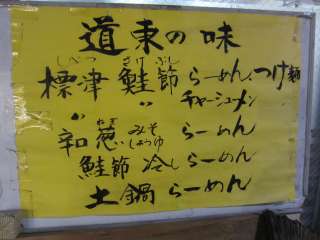 道東の味
しべつ さけ ぶし
標津 鮭節 らーめん、つけ麺
〃 チャーシューメン
ねぎ みそ しょうゆ
〃 辛葱 らーめん
鮭節 冷しらーめん
土鍋らーめん